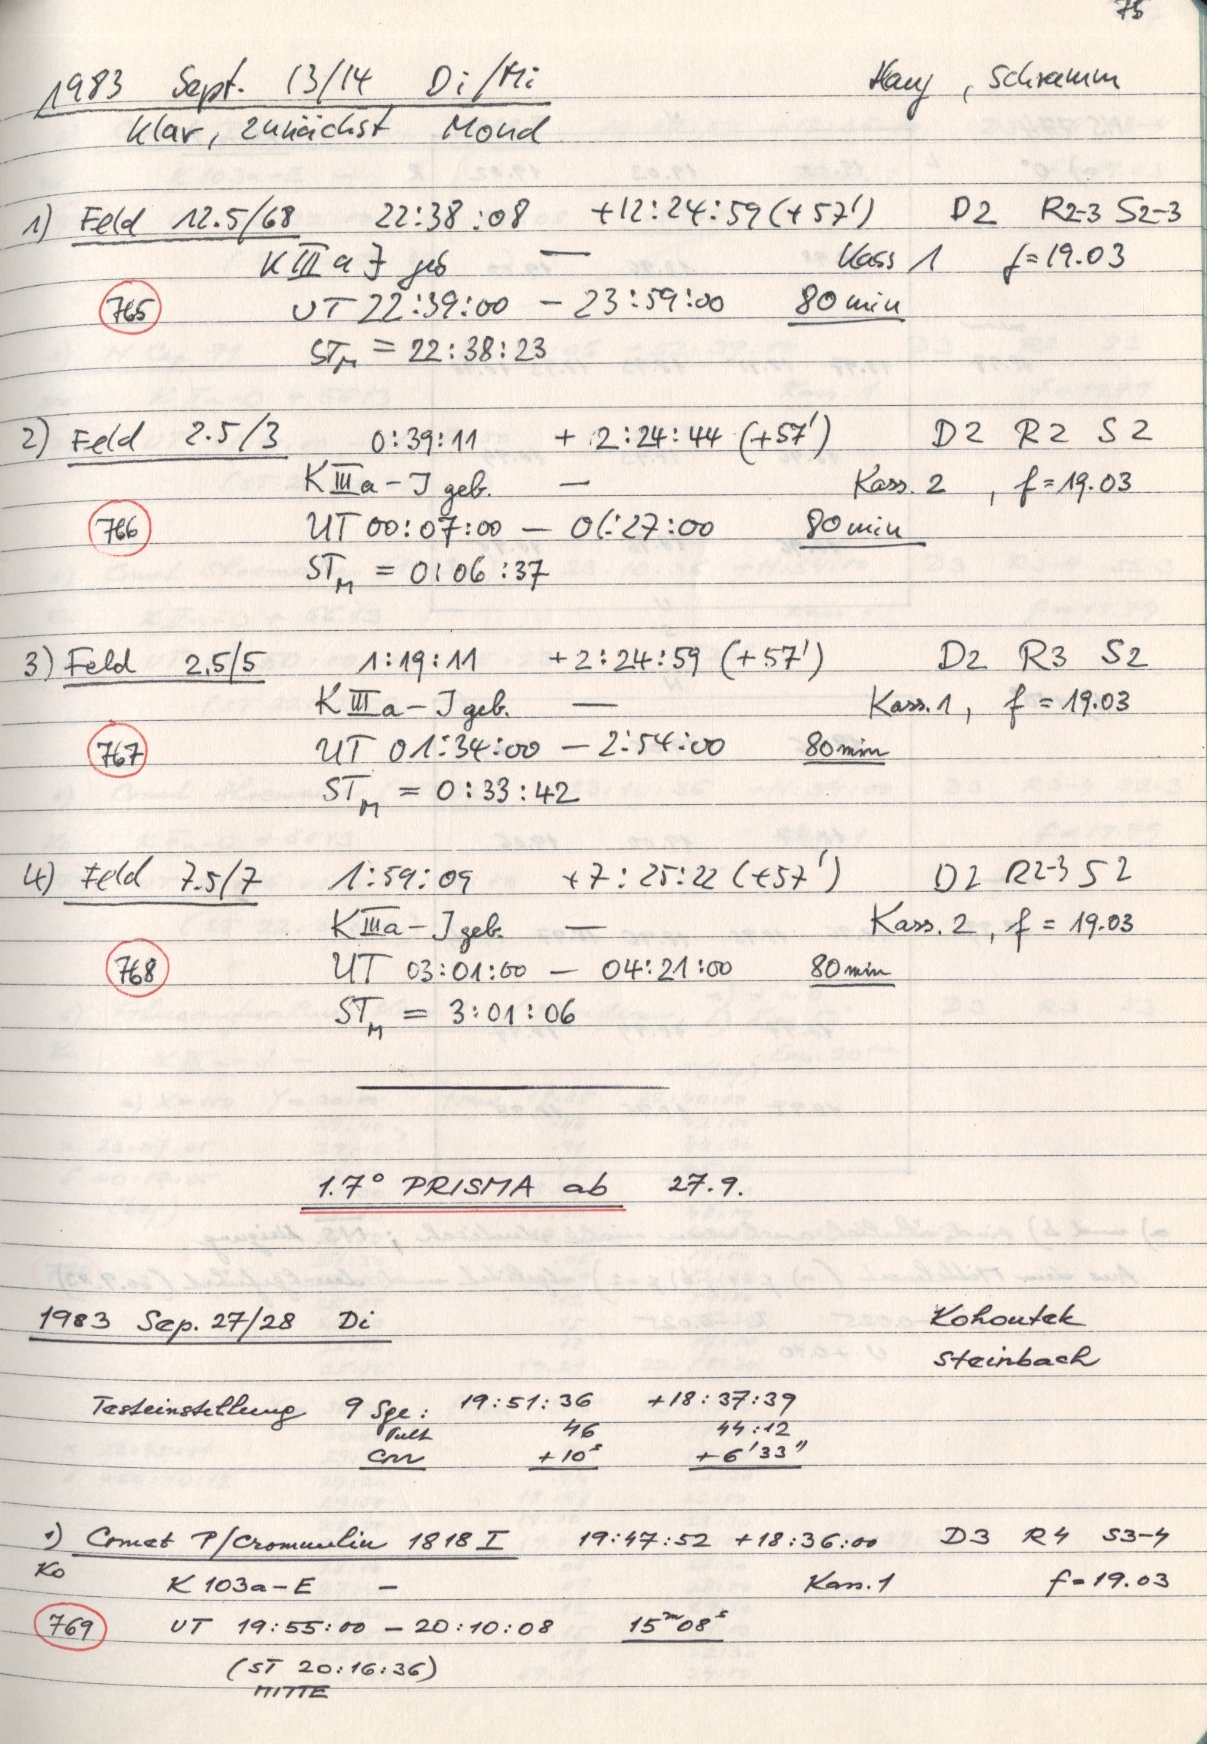 75
1983 Sept. 13/14 Di/Mi Haug, Schramm
Klar, zunächst Mond
1) Feld 12.5/68 22:38:08 +12:24:59 (+57') D2 R2-3 S2-3
KIIIaJ geb — Kass 1 f=19.03
765 UT 22:39:00 – 23:59:00 80 min
STM = 22:38:23
2) Feld 2.5/3 0:39:11 +2:24:44 (+57') D2 R2 S2
KIIIa-J geb. — Kass. 2, f=19.03
766 UT 00:07:00 – 01:27:00 80 min
STM = 0:06:37
3) Feld 2.5/5 1:19:11 +2:24:59 (+57') D2 R3 S2
KIIIa-J geb. — Kass. 1, f=19.03
767 UT 01:34:00 – 2:54:00 80 min
STM = 0:33:42
4) Feld 7.5/7 1:59:09 +7:25:22 (+57') D2 R2-3 S2
KIIIa-J geb. — Kass. 2, f=19.03
768 UT 03:01:00 – 04:21:00 80 min
STM = 3:01:06
1.7° PRISMA ab 27.9.
1983 Sep. 27/28 Di Kohoutek
Steinbach
Testeinstellung 9 Sge: 19:51:36 +18:37:39
Pult 46 44:12
Corr +10s +6'33"
1) Comet P/Crommelin 1818 I 19:47:52 +18:36:00 D3 R4 S3-4
Ko K 103a-E – Kass. 1 f=19.03
769 UT 19:55:00 – 20:10:08 15m08s
(ST 20:16:36)
MITTE